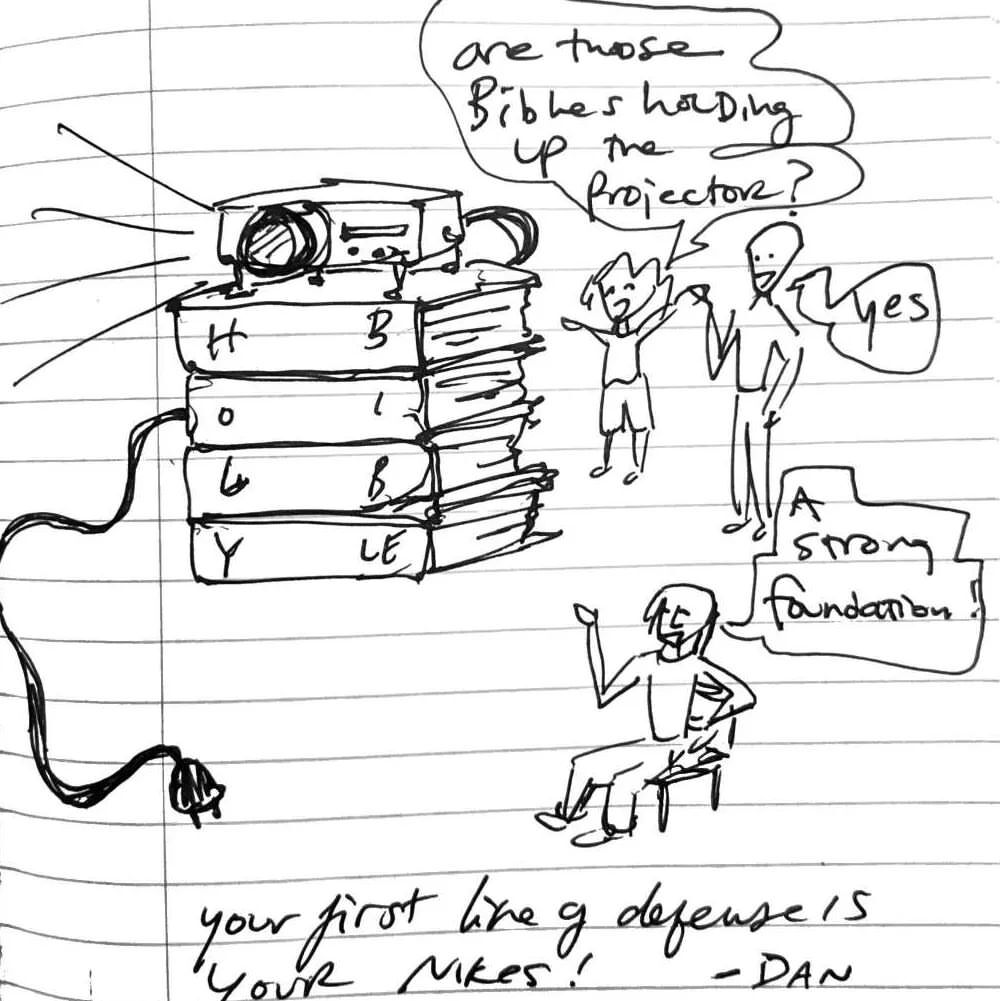 are those
Bibles holding
up the
Projector?
Yes
H B
O I
L B
Y LE
A
strong
foundation!
your first line of defense is
your Nikes! - DAN